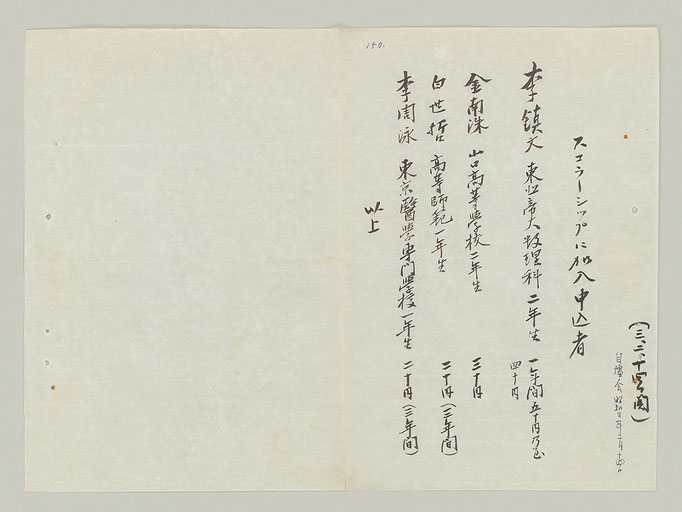 150.
(三、二、十四ノ関)
昭和十一年二月十四日
スコラーシップに加入申込者
李鎮文 東北帝大数理科 二年生 一年間五十円乃至
四十円
金南洙 山口高等学校二年生 三十円
白世哲 高等師範一年生 二十円(三年間)
李周泳 東京醫学専門学校一年生 二十円(三年間)
以上